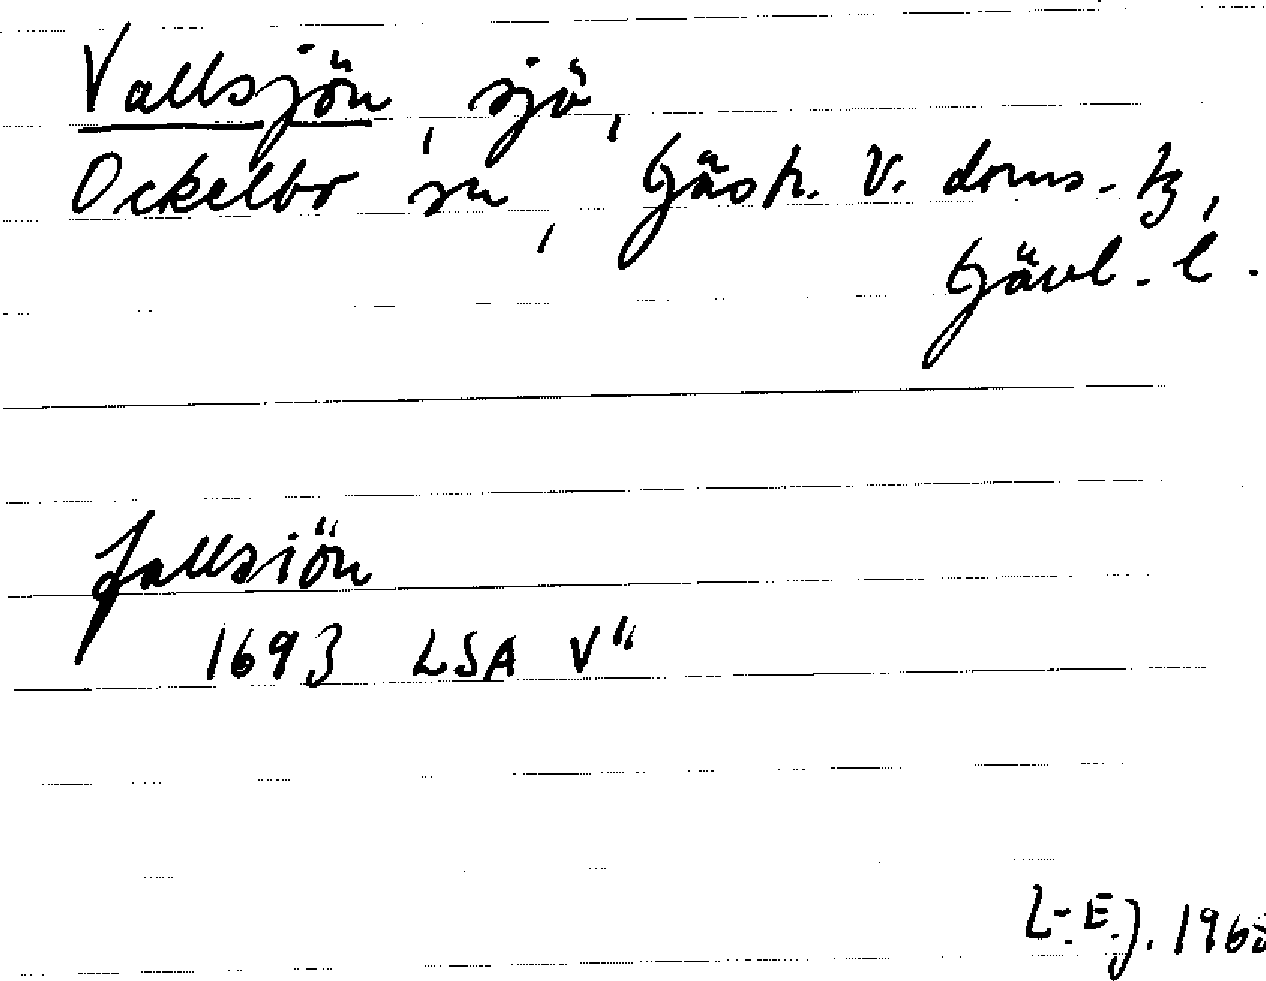 Vallsjön, sjö,
Ockelbo sn, Gästr. V. doms. tg,
Gävl. l.
fallsiön
1693 LSA V"
L.-E.J. 1968